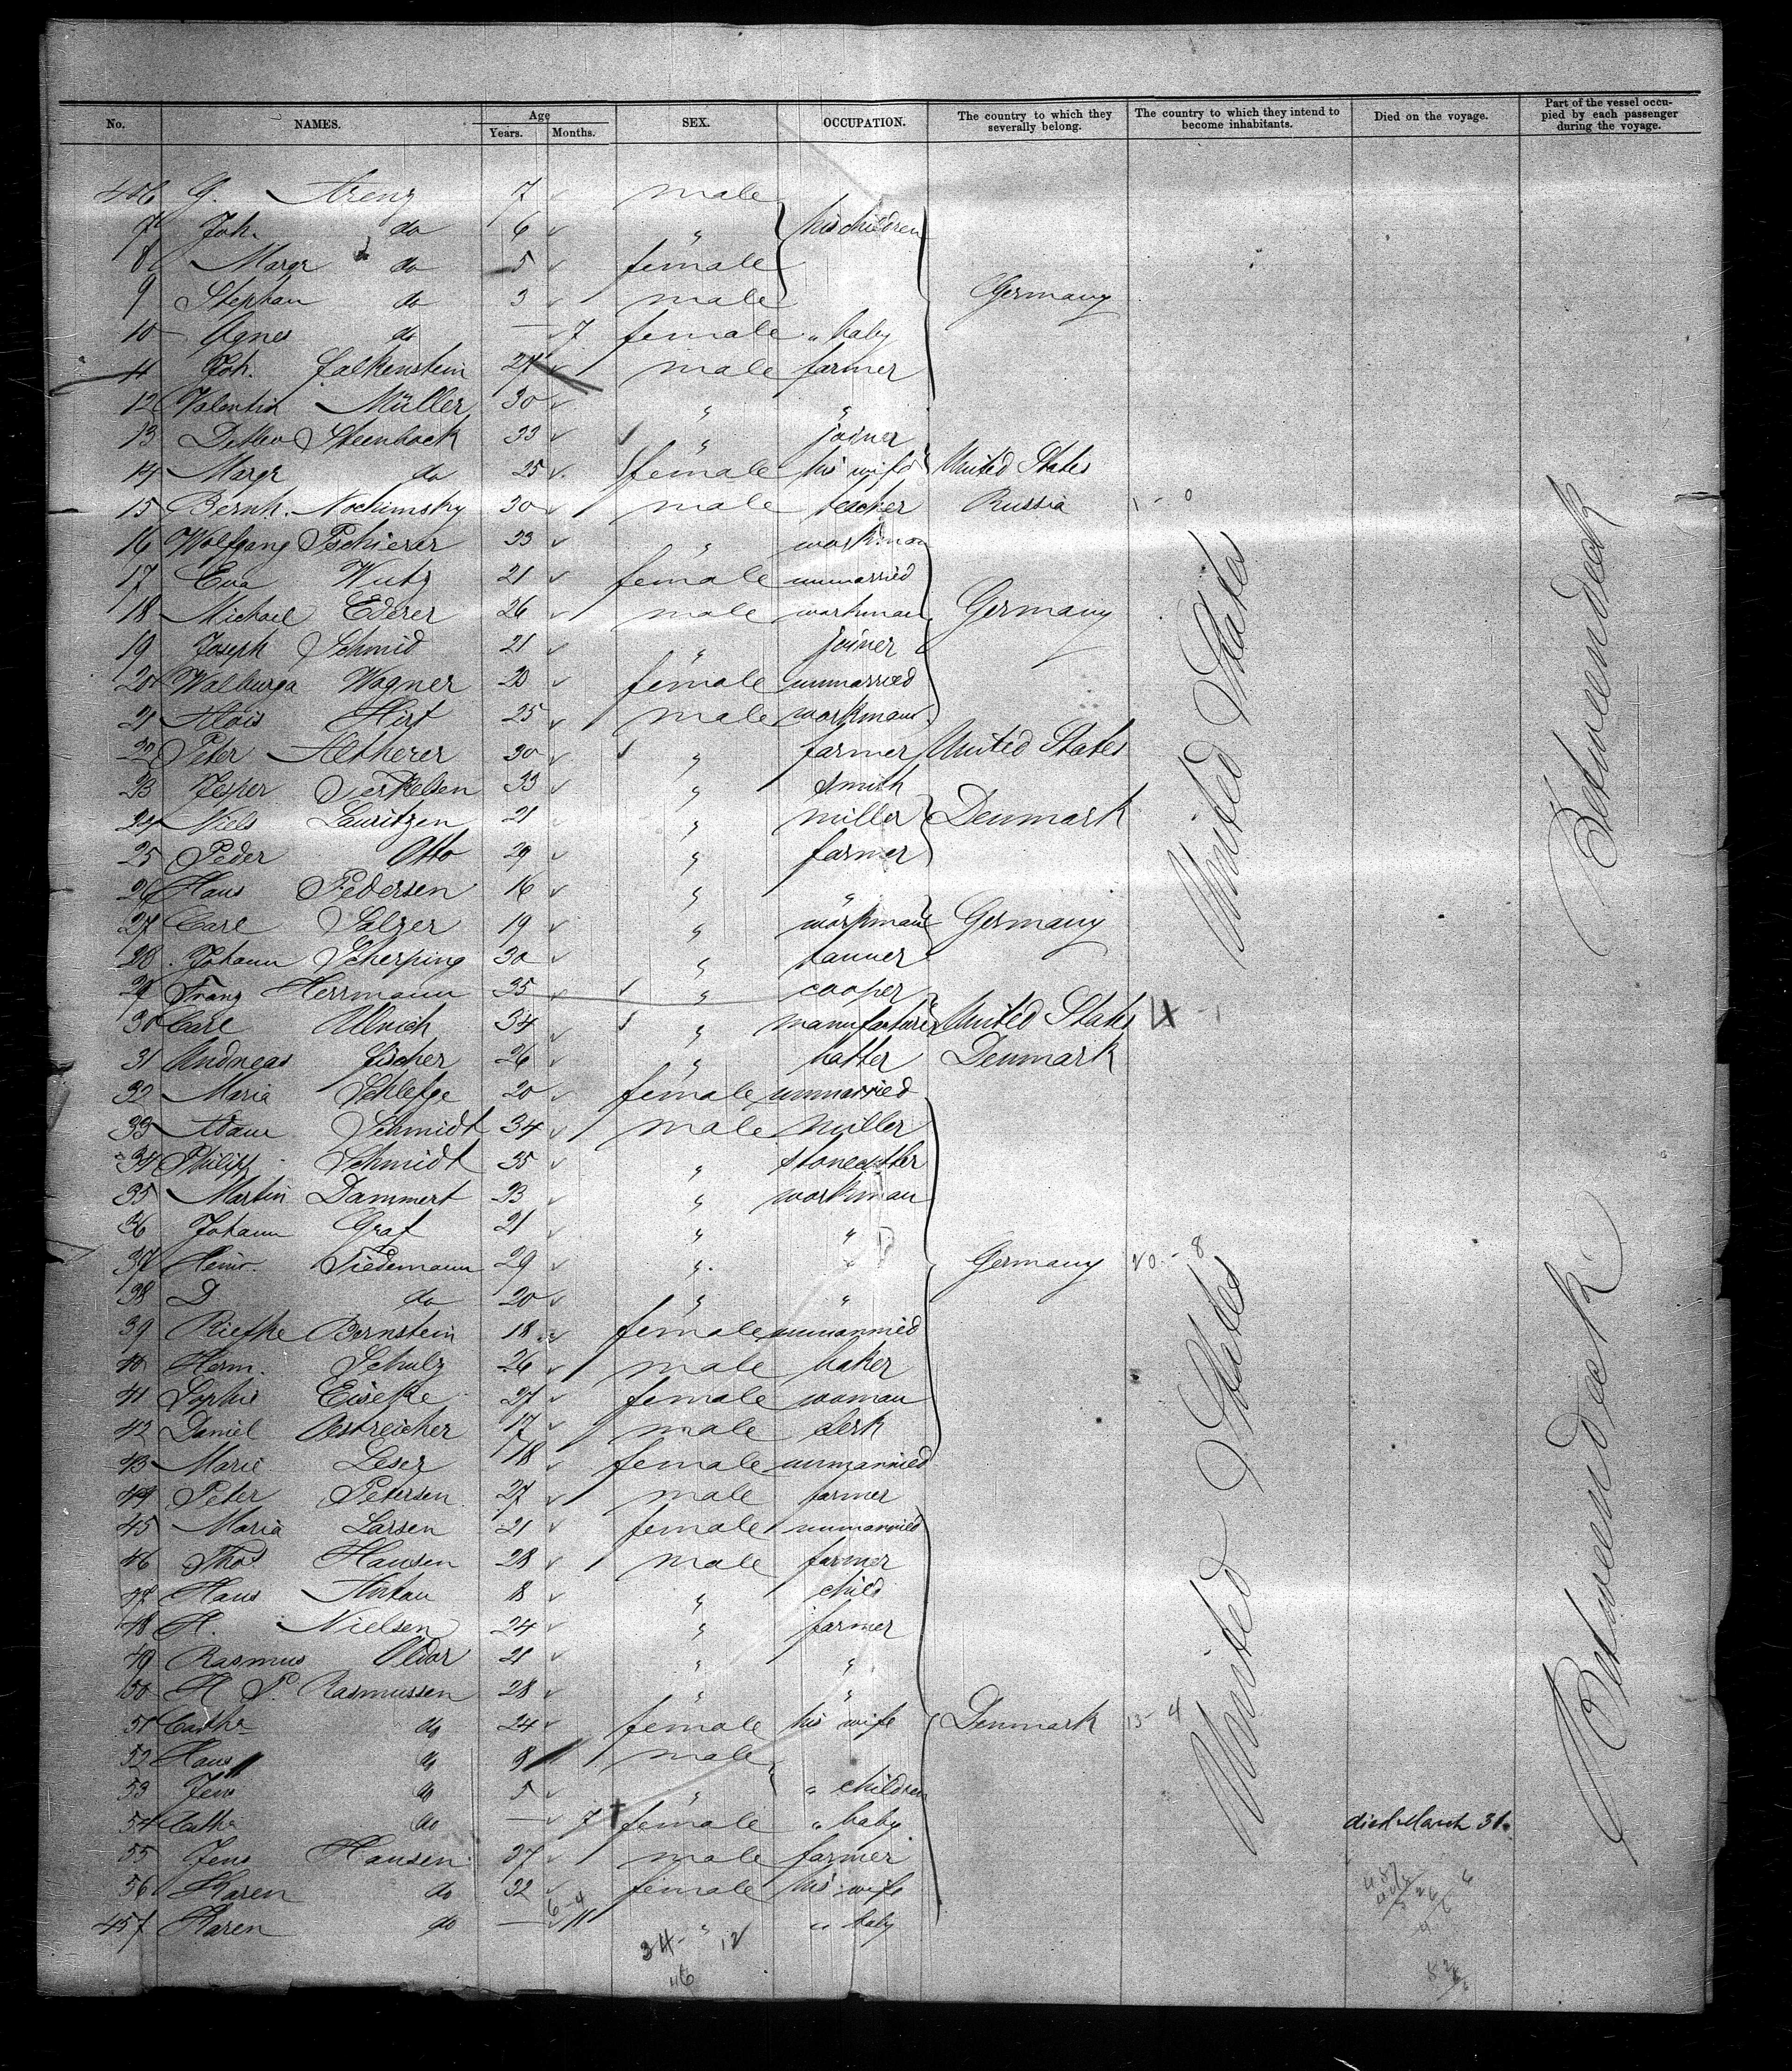 No. NAMES. Age Years. Months. SEX. OCCUPATION. The country to which they severally belong. The country to which they intend to become inhabitants. Died on the voyage. Part of the vessel occupied by each passenger during the voyage.
406 G. Arenz 7 male
7 Joh. do 6 " his children
8 Margr do 5 female
9 Stephan do 3 male Germany
10 Agnes do — 7 female " baby
11 Joh. Falkenstein 27 male farmer
12 Valentin Müller 30 " "
13 Detlev Steenbock 33 " joiner
14 Margr do 25 female his wife United States
15 Bernh. Nochimsky 30 male teacher Russia 1 - 0
16 Wolfgang Pschierer 33 " workman
17 Eva Wutz 21 female unmarried
18 Michael Ederer 26 male workman Germany
19 Joseph Schmid 21 " joiner
20 Walburga Wagner 20 female unmarried
21 Alois Hirt 25 male workman
22 Peter Altherer 30 " farmer United States
23 Jesper Terkelsen 33 " smith
24 Niels Lauritzen 21 " miller Denmark
25 Peder Otto 29 " farmer
26 Hans Pedersen 16 " "
27 Carl Salzer 19 " workman Germany
28 Johann Scherping 30 " tanner
29 Franz Herrmann 35 " cooper
30 Carl Ulrich 34 " manufacturer United States
31 Andreas Fischer 26 " hatter Denmark
32 Maria Schlefge 20 female unmarried
33 Adam Schmidt 34 male miller
34 Philipp Schmidt 35 " stonecutter
35 Martin Dammert 23 " workman
36 Johann Graf 21 " "
37 Heinr. Tiedemann 29 " " Germany 20 - 8
38 D do 20 " "
39 Riefke Bernstein 18 female unmarried
40 Herm. Schulz 26 male baker
41 Sophie Eiseke 27 female woman
42 Daniel Oestreicher 17 male clerk
43 Marie Leser 18 female unmarried
44 Peter Petersen 27 male farmer
45 Maria Larsen 21 female unmarried
46 Thos Hansen 28 male farmer
47 Hans Anton 8 " child
48 H. Nielsen 24 " farmer
49 Rasmus Oldor 21 " "
50 H. P. Rasmussen 28 " "
51 Cathr do 24 female his wife Denmark 13 - 4
52 Hans do 8 male
53 Jens do 5 " " children
54 Cathr do — 7 female " baby died March 31.
55 Jens Hansen 37 male farmer
56 Karen do 32 female his wife
457 Karen do — 11 " " baby
6-4
34 - 12
46
United States
United States
Betweendeck
Betweendeck